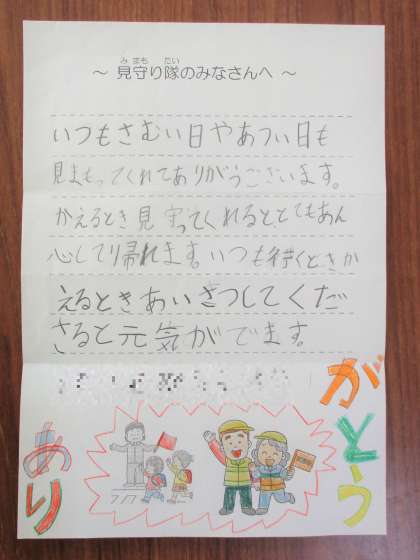 ～ 見守り隊のみなさんへ ～
いつもさむい日やあつい日も
見まもってくれてありがうございます。
かえるとき見守ってくれると、とてもあん
心してり帰れます。いつも行くときか
えるときあいさつしてくだ
さると元気がでます。
ありがとう